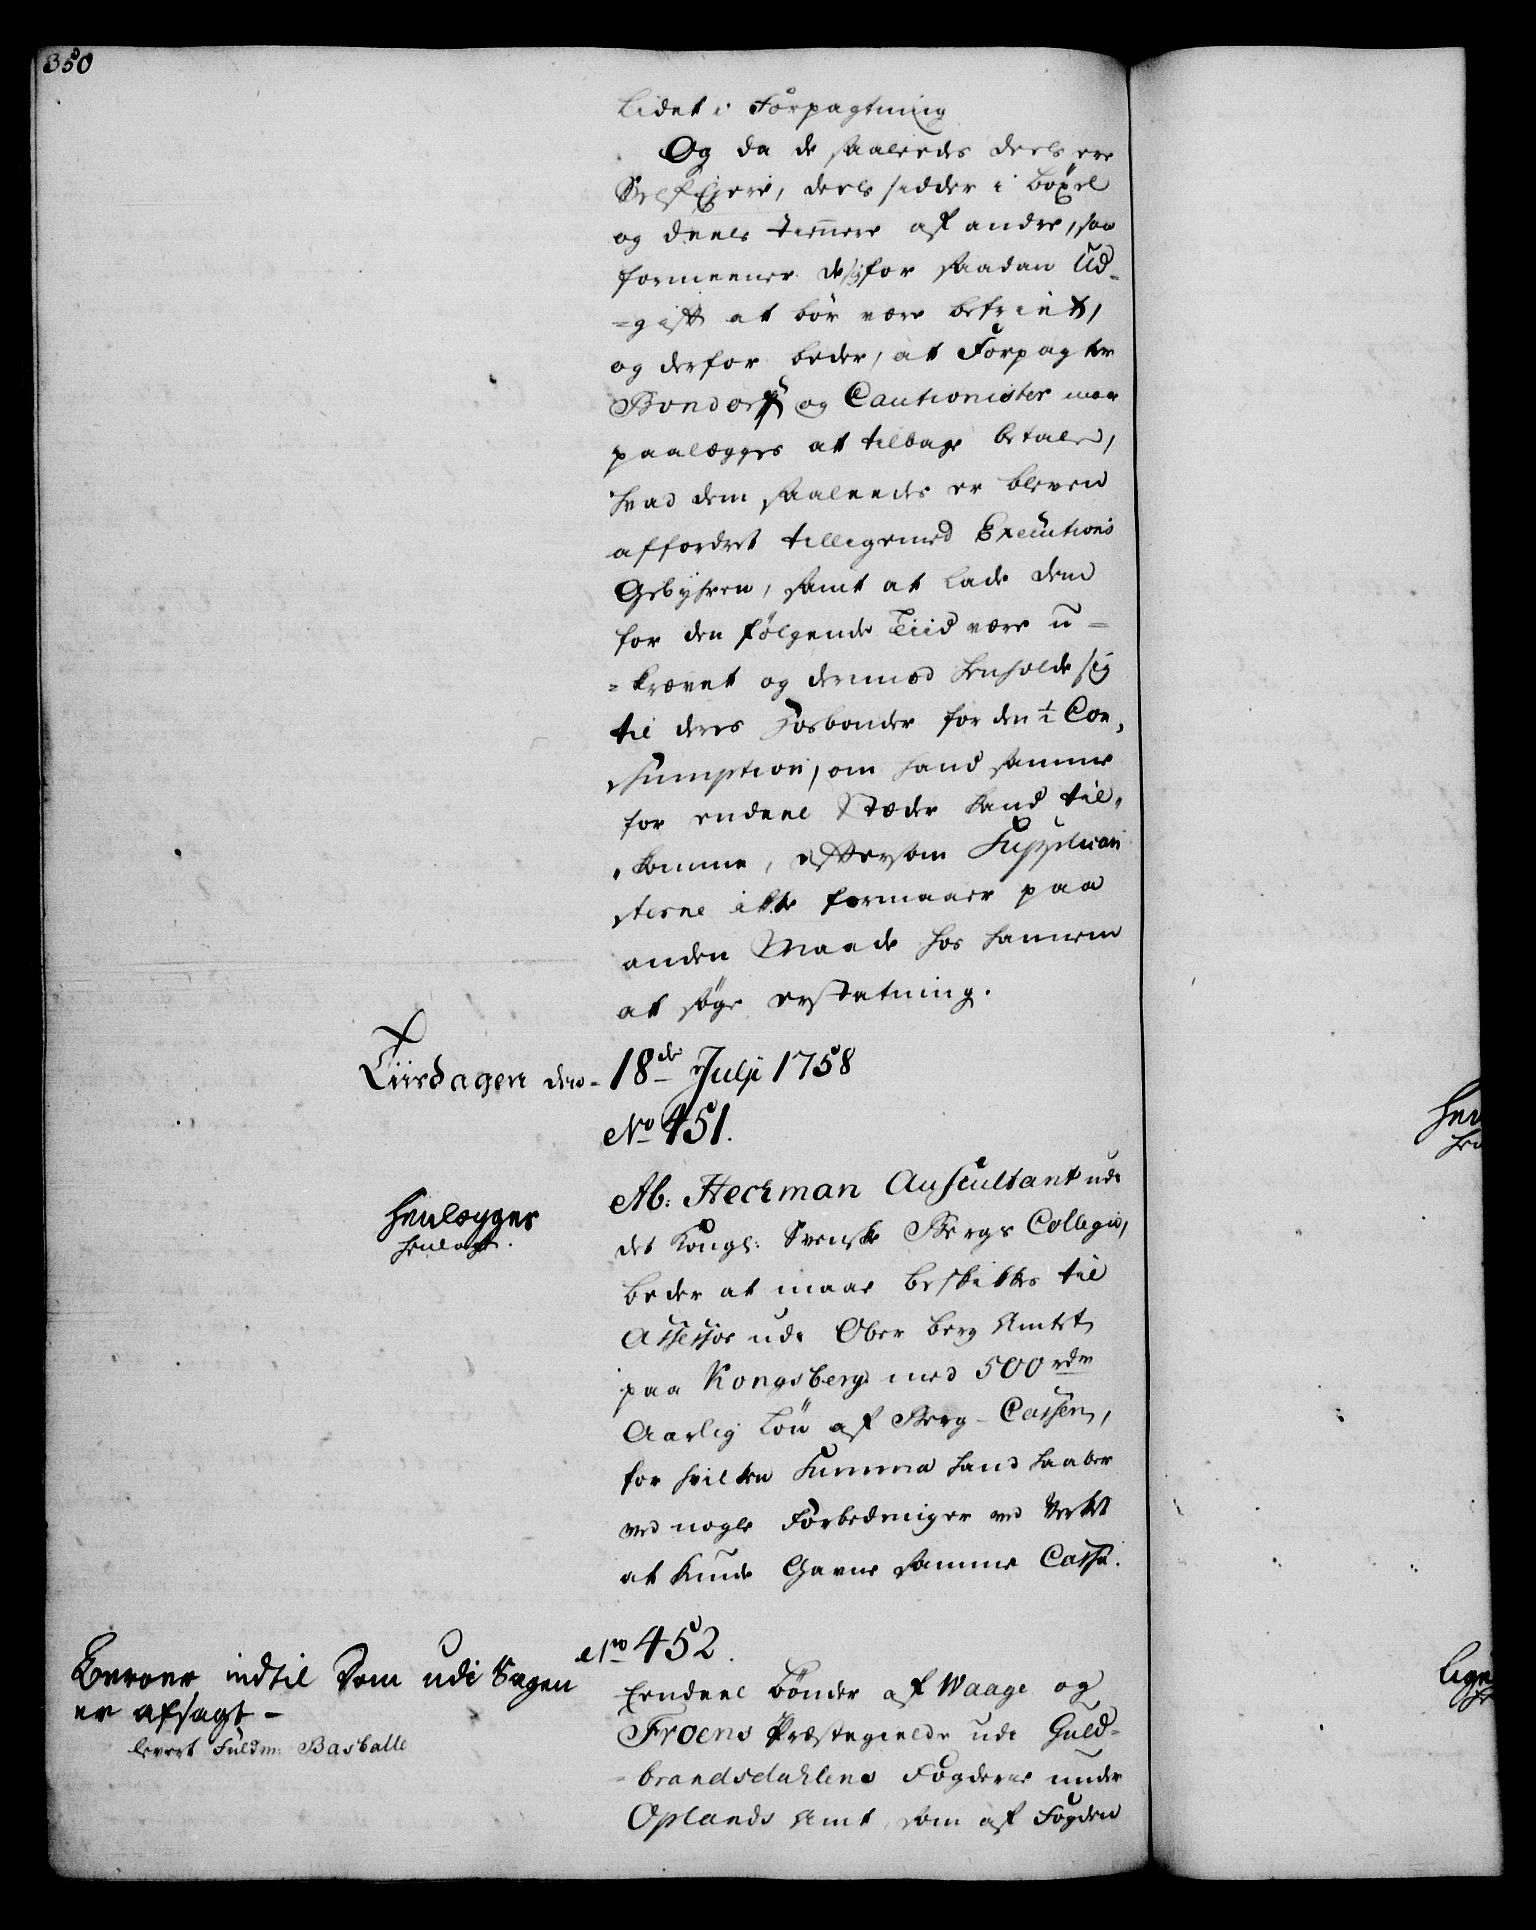 350
lidet i Forpagtning
Og da de saaleedes deels ere
Selv Eyere, deels sidder i böxel
og deels tienere af andre, saa
formeener de sig for saadan Ud-
=gift at bör være befriet,
og derfor beder, at Forpagter
Bondorph og Cautionister maa
paalægges at tilbage betale,
hvad dem saaleedes er bleven
affordret tilligemed Executions
Gebyhren, samt at lade dem
for den følgende Tiid være u-
=krævet og dermed henholde sig
til deres Hosbonder for den ½ Con,
sumption, om hand samme
for endeel Stæder kand til,
,komme, eftersom Supplican
terne ikke formaaer paa
anden Maade hos hannem
at søge erstatning.
Tiirsdagen den 18de Julii 1758
No 451.
Henlægges
henlagt.
Ab: Heckman Auscultant udi
det Kongl: Svenske Bergs Collegio,
beder at maae beskikkes til
Assessor udi Ober berg Amtet
paa Kongsberg med 500 rdr
Aarlig Lön af Berg-Cassen,
for hvilken Summa hand haaber
ved nogle Forbedringer ved Verket
at kunde Gavne samme Casse.
No 452.
Beroer indtil Dom udi Sagen
er afsagt -
levert Fuldm: Basballe
Eendeel bönder af Waage og
Froens Præstegielde udi Guld-
=brandsdahlens Fogderie under
Oplands Amt, som af Fogden